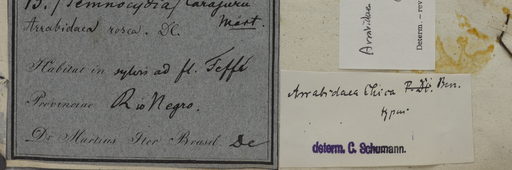 13. / Temnocydia / Carajuru
Mart.
Arrabidaea rosea. DC.
Habitat in sylvis ad fl. Teffé
Provinciae Rio Negro.
Dr Martius Iter Brasil. De
Arrabidaea
Determ. – rev
Arrabidaea Chica P. DC. Bur.
typus
determ. C. Schumann.